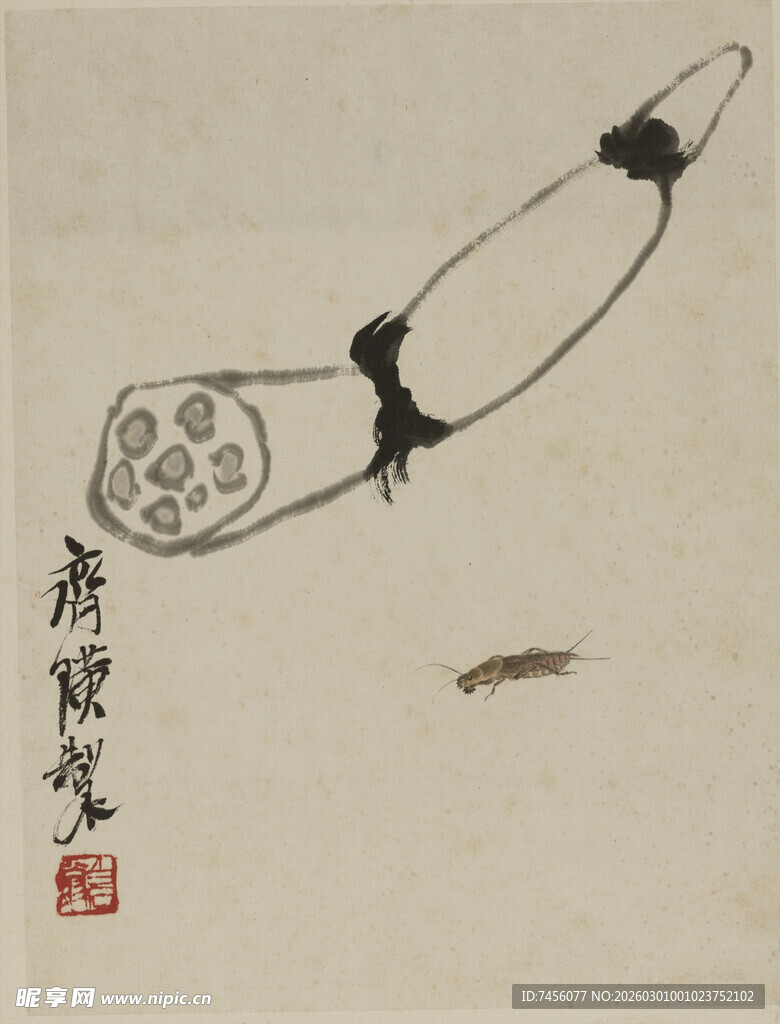 齊璜製
昵享网 www.nipic.cn
ID:7456077 NO:20260301001023752102